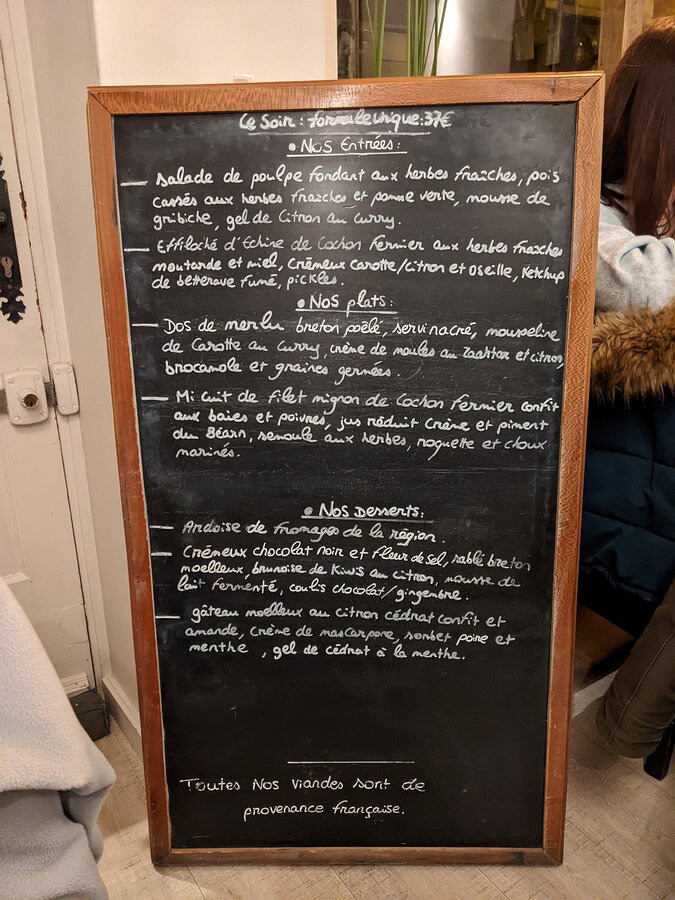 Ce Soir : formule unique : 37€
• Nos Entrées :
— salade de poulpe fondant aux herbes fraîches, pois
cassés aux herbes fraîches et pomme verte, mousse de
gribiche, gel de Citron au Curry.
— Effiloché d'échine de Cochon Fermier aux herbes fraîches
moutarde et miel, Crémeux Carotte/citron et Oseille, Ketchup
de betterave fumé, pickles.
• Nos plats :
— Dos de merlu breton poêlé, servi nacré, mousseline
de Carotte au Curry, crème de moules au Zaahtar et citron,
brocamole et graines germées.
— Mi cuit de filet mignon de Cochon fermier confit
aux baies et poivres, jus réduit Crème et piment
du Béarn, semoule aux herbes, roquette et choux
marinés.
• Nos Desserts :
— Ardoise de fromages de la région.
— Crémeux chocolat noir et Fleur de Sel, sablé breton
moelleux, brunoise de Kiwis au citron, mousse de
lait fermenté, coulis chocolat/gingembre.
— gâteau moelleux au citron cédrat confit et
amande, Crème de mascarpone, sorbet poire et
menthe , gel de cédrat à la menthe.
Toutes Nos viandes sont de
provenance française.